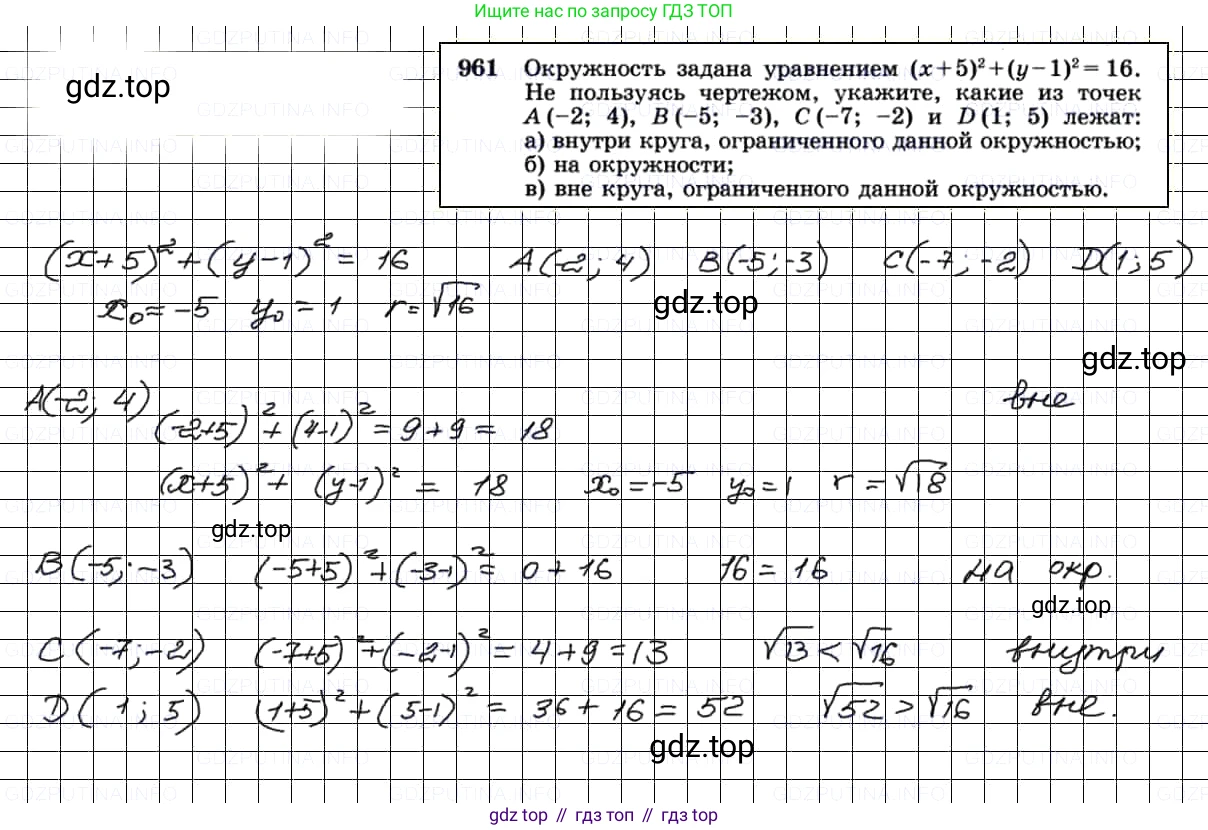 Ищите нас по запросу ГДЗ ТОП
gdz.top
961 Окружность задана уравнением (x+5)²+(y−1)²=16.
Не пользуясь чертежом, укажите, какие из точек
A(−2; 4), B(−5; −3), C(−7; −2) и D(1; 5) лежат:
а) внутри круга, ограниченного данной окружностью;
б) на окружности;
в) вне круга, ограниченного данной окружностью.
(x+5)²+(y−1)² = 16 A(−2; 4) B(−5;−3) C(−7;−2) D(1;5)
x₀=−5 y₀=1 r=√16
gdz.top
gdz.top
A(−2; 4) вне
(−2+5)²+(4−1)²=9+9= 18
(x+5)²+(y−1)² = 18 x₀=−5 y₀=1 r=√18
gdz.top
B(−5;−3) (−5+5)²+(−3−1)²= 0+16 16=16 на окр.
gdz.top
C(−7;−2) (−7+5)²+(−2−1)²=4+9=13 √13<√16 внутри
D(1;5) (1+5)²+(5−1)² = 36+16=52 √52>√16 вне.
gdz.top
gdz.top // гдз топ // gdz top
GDZPUTINA.INFO